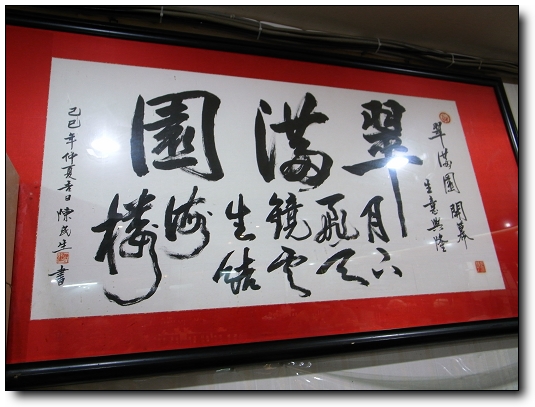 翠滿園開幕
生意興隆
翠滿園
月下
飛天
鏡雲
生結
海
樓
己巳年仲夏吉日陳生書